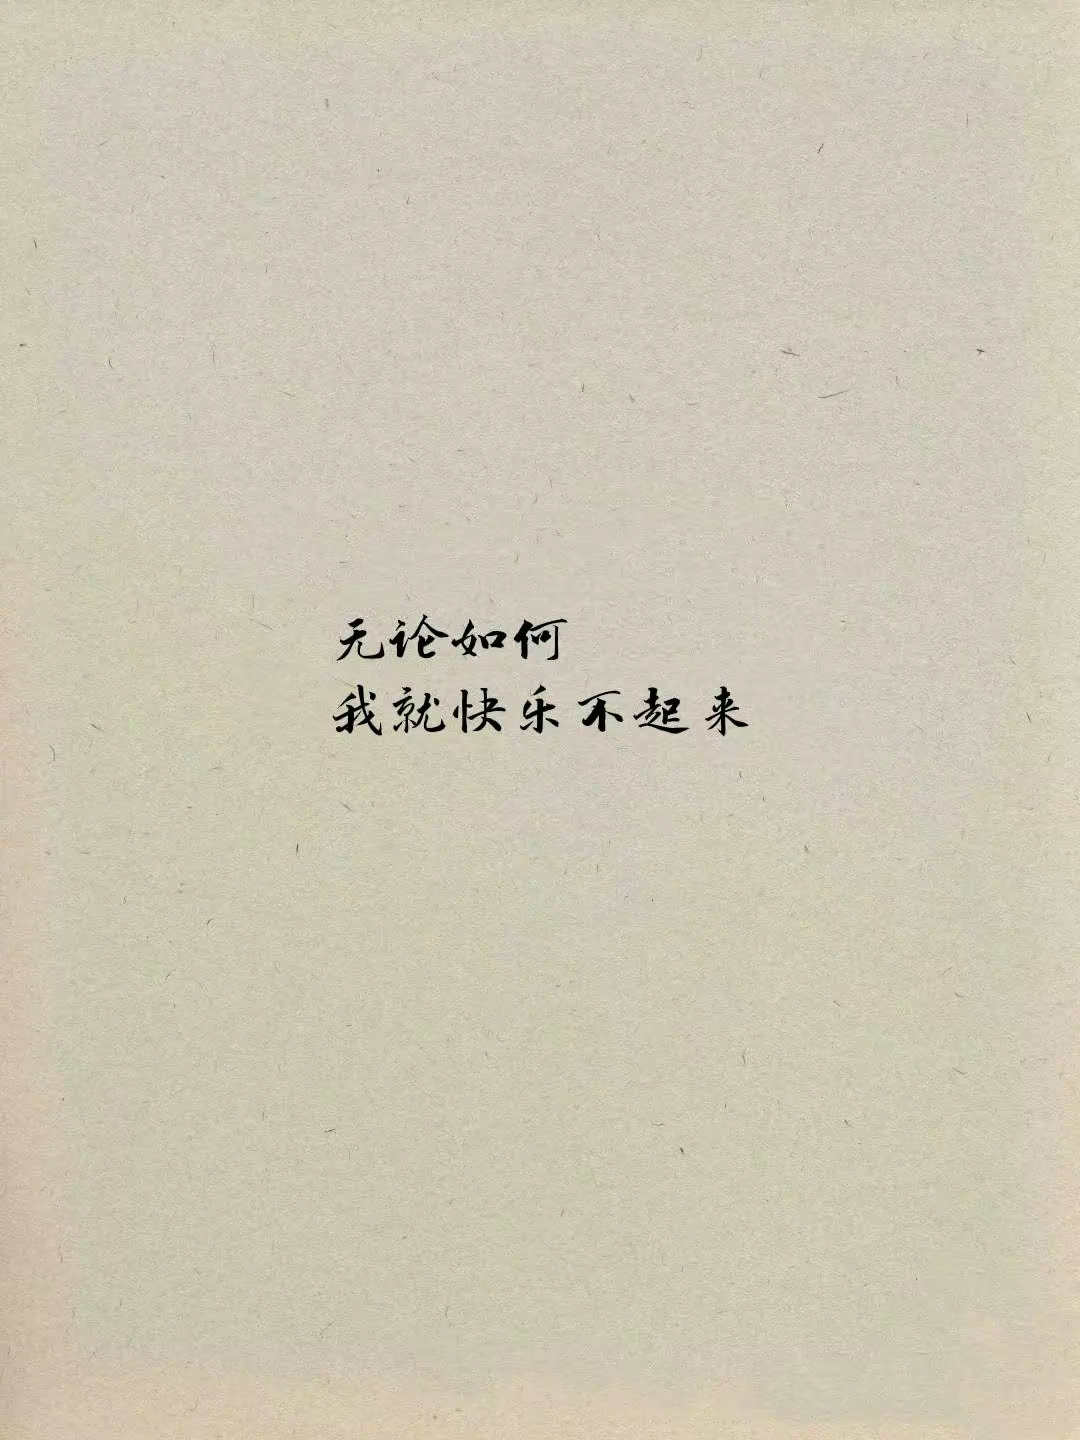 无论如何
我就快乐不起来